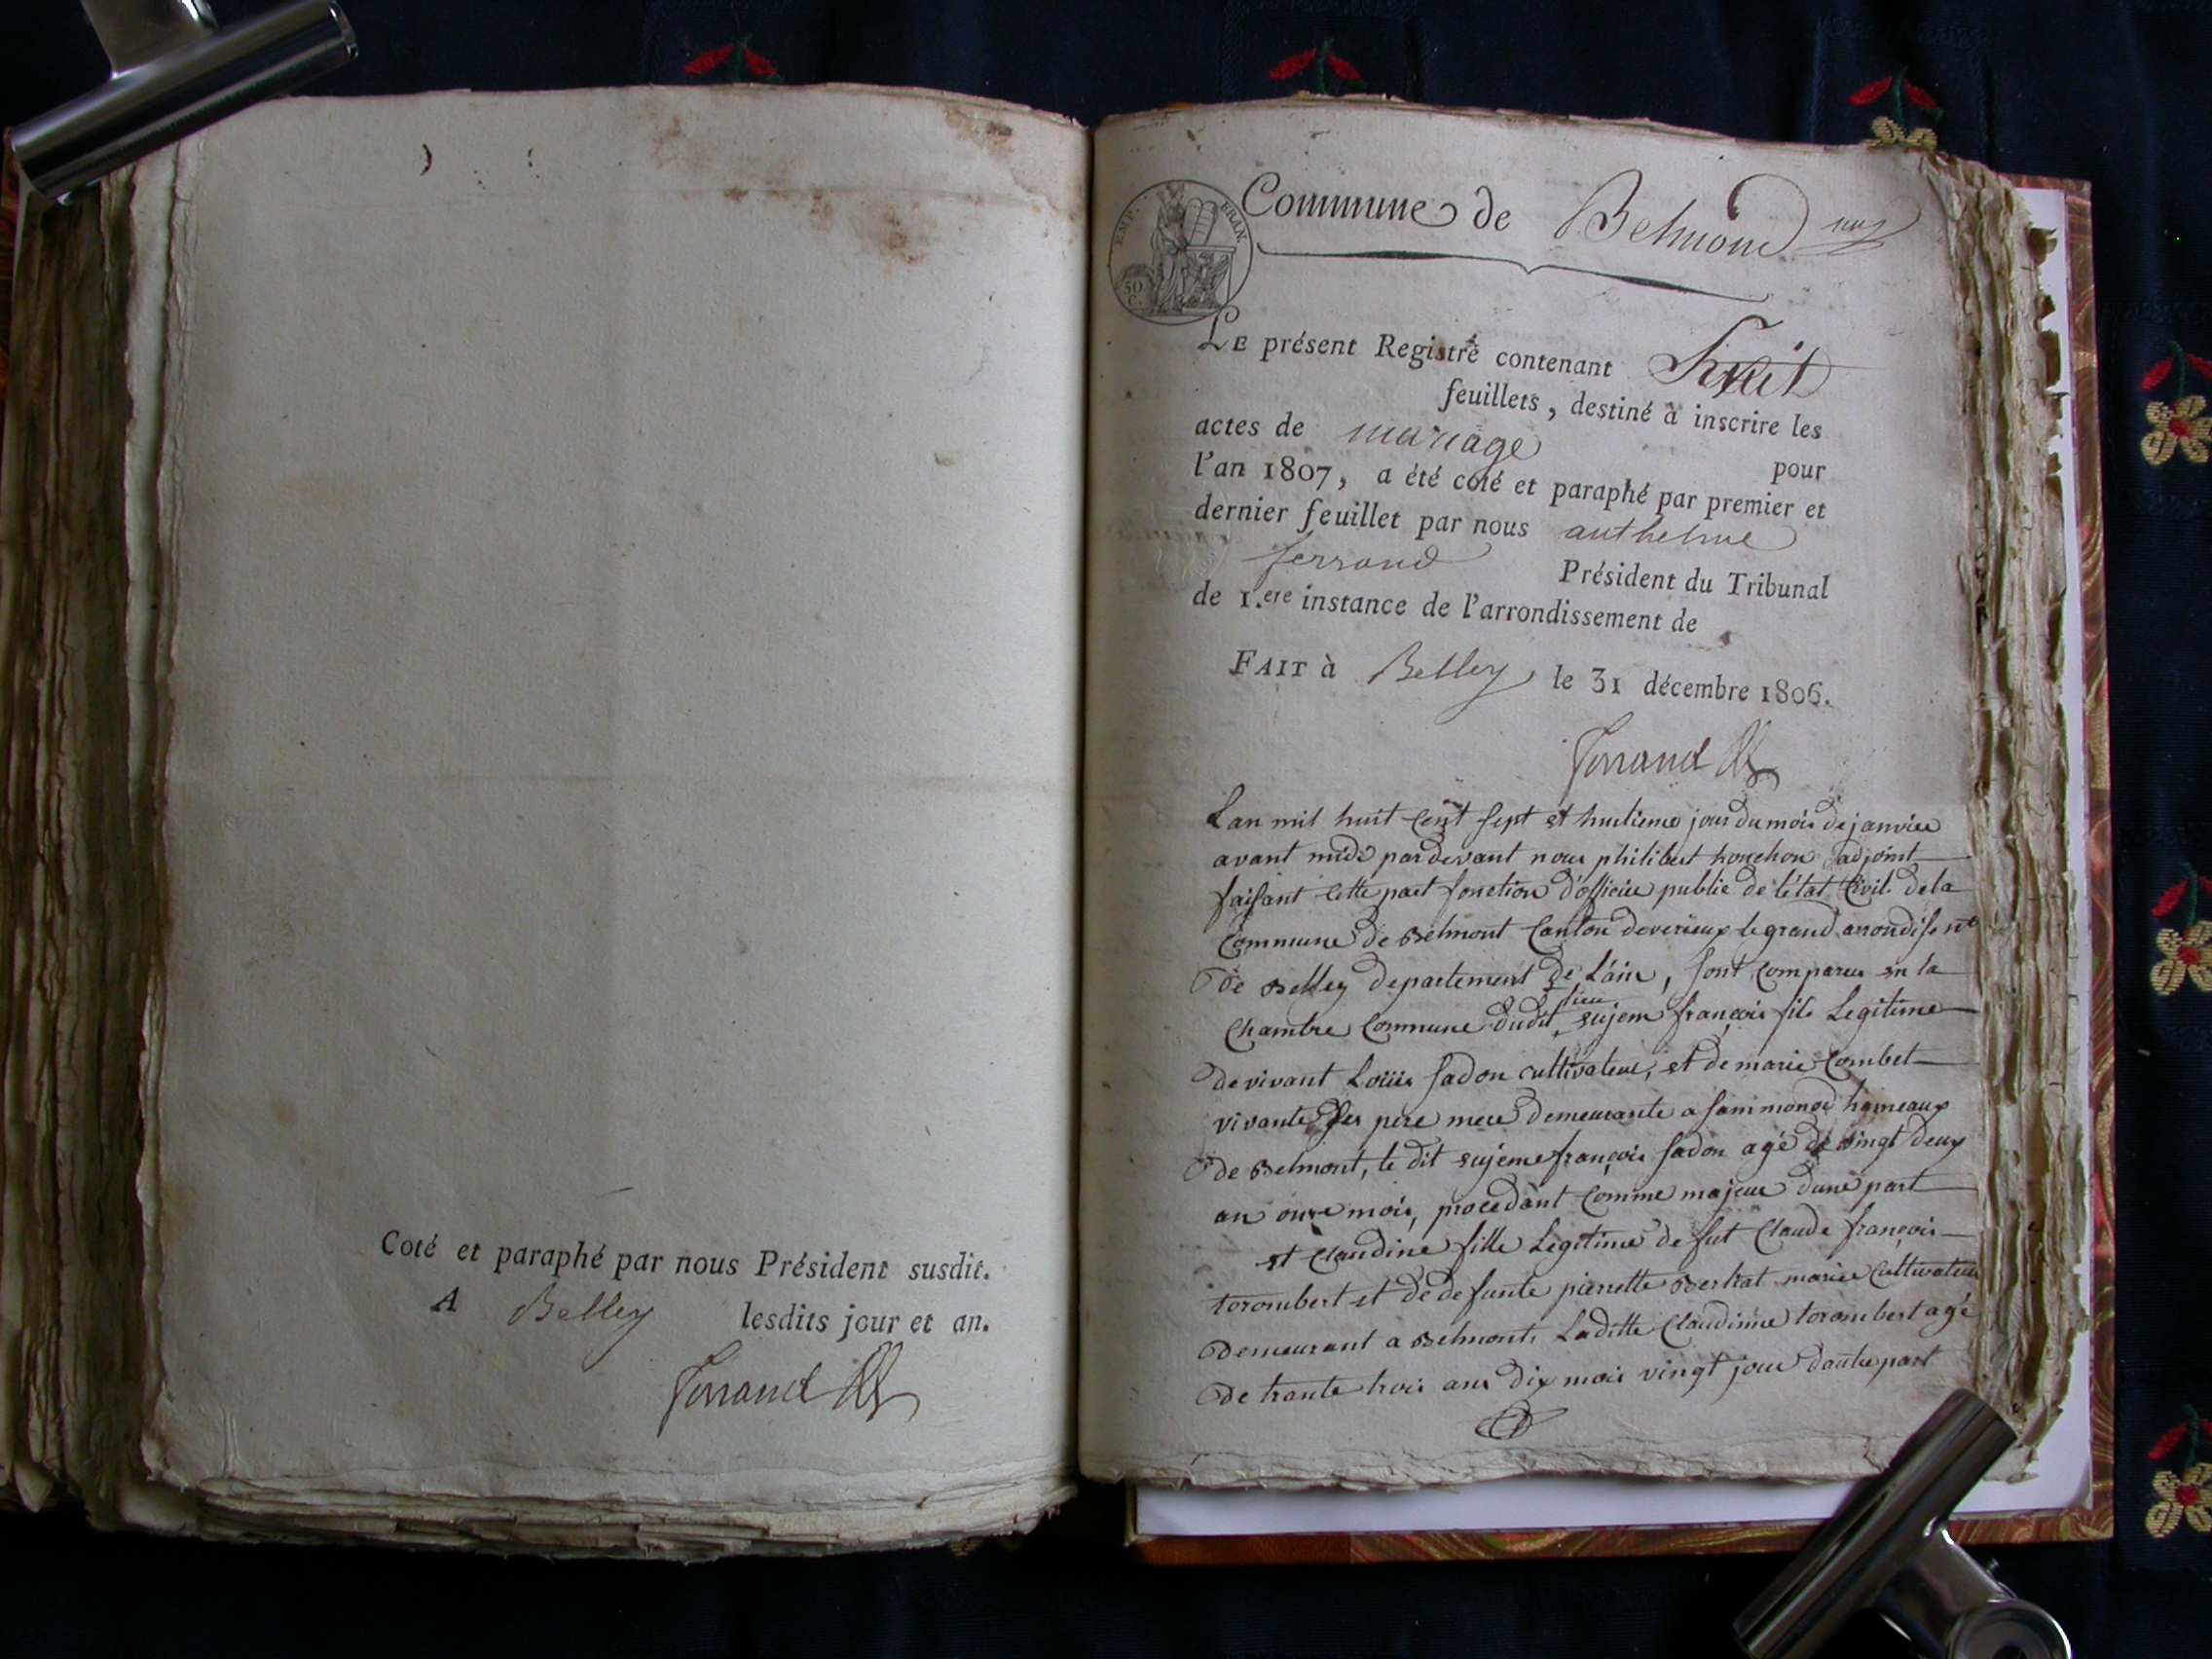 Coté et paraphé par nous Président susdit.
A Belley lesdits jour et an.
Ferrand
EMP. FRAN.
50 C.
Commune de Belmond
LE présent Registre contenant huit
feuillets, destiné à inscrire les
actes de mariage pour
l'an 1807, a été coté et paraphé par premier et
dernier feuillet par nous anthelme
ferrand Président du Tribunal
de 1.ere instance de l'arrondissement de
FAIT à Belley le 31 décembre 1806.
Ferrand
Lan mil huit cent sept et huitieme jour du mois de janvier
avant midi pardevant nous philibert adjoint
faisant cette part fonction d'officier public de l'état Civil de la
Commune de Belmont Canton de virieux le grand arondis.nt
de Belley departement de L'ain, sont comparus en la
Chambre Commune dudit lieu sujeme françois fils Legitime
de vivant Loüis fadon cultivateur, et de marie Combet
vivante ses pere mere demeurante a hameaux
de Belmont, le dit sujeme françois fadon agé de vingt deux
an onze mois, procedant comme majeur dune part
et Claudine fille Legitime de fut Claude françois
torombert et de defunte pierrette mariée Cultivateur
Demeurant a Belmont, Laditte Claudinne torombert agé
De trante trois ans dix mois vingt jour dautre part